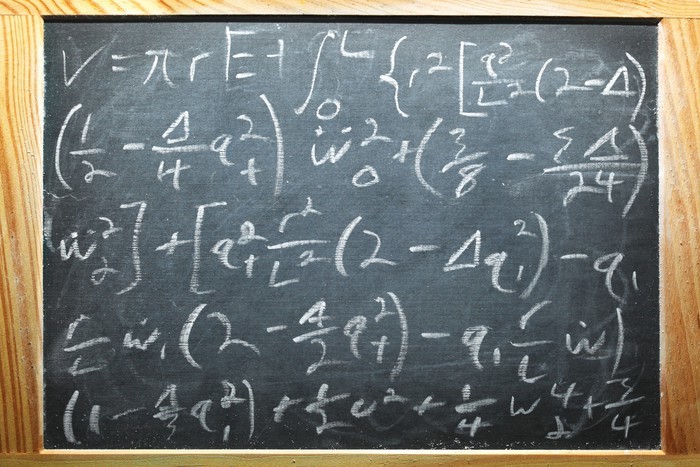 V = π r [E+ ∫₀ᴸ { r² [ q²/L² (2-Δ)
(1/2 - Δ/4 q₊²) ẅ₀² + (3/8 - ΣΔ/24)
ẅ₂²] + [q₊² r²/L² (2 - Δq₁²) - q₁
r/L ẇ₁ (2 - Δ/2 q₊²) - q₁ r/L ẇ)
(1 - q₁²) + u² + 1/4 w + 3/4